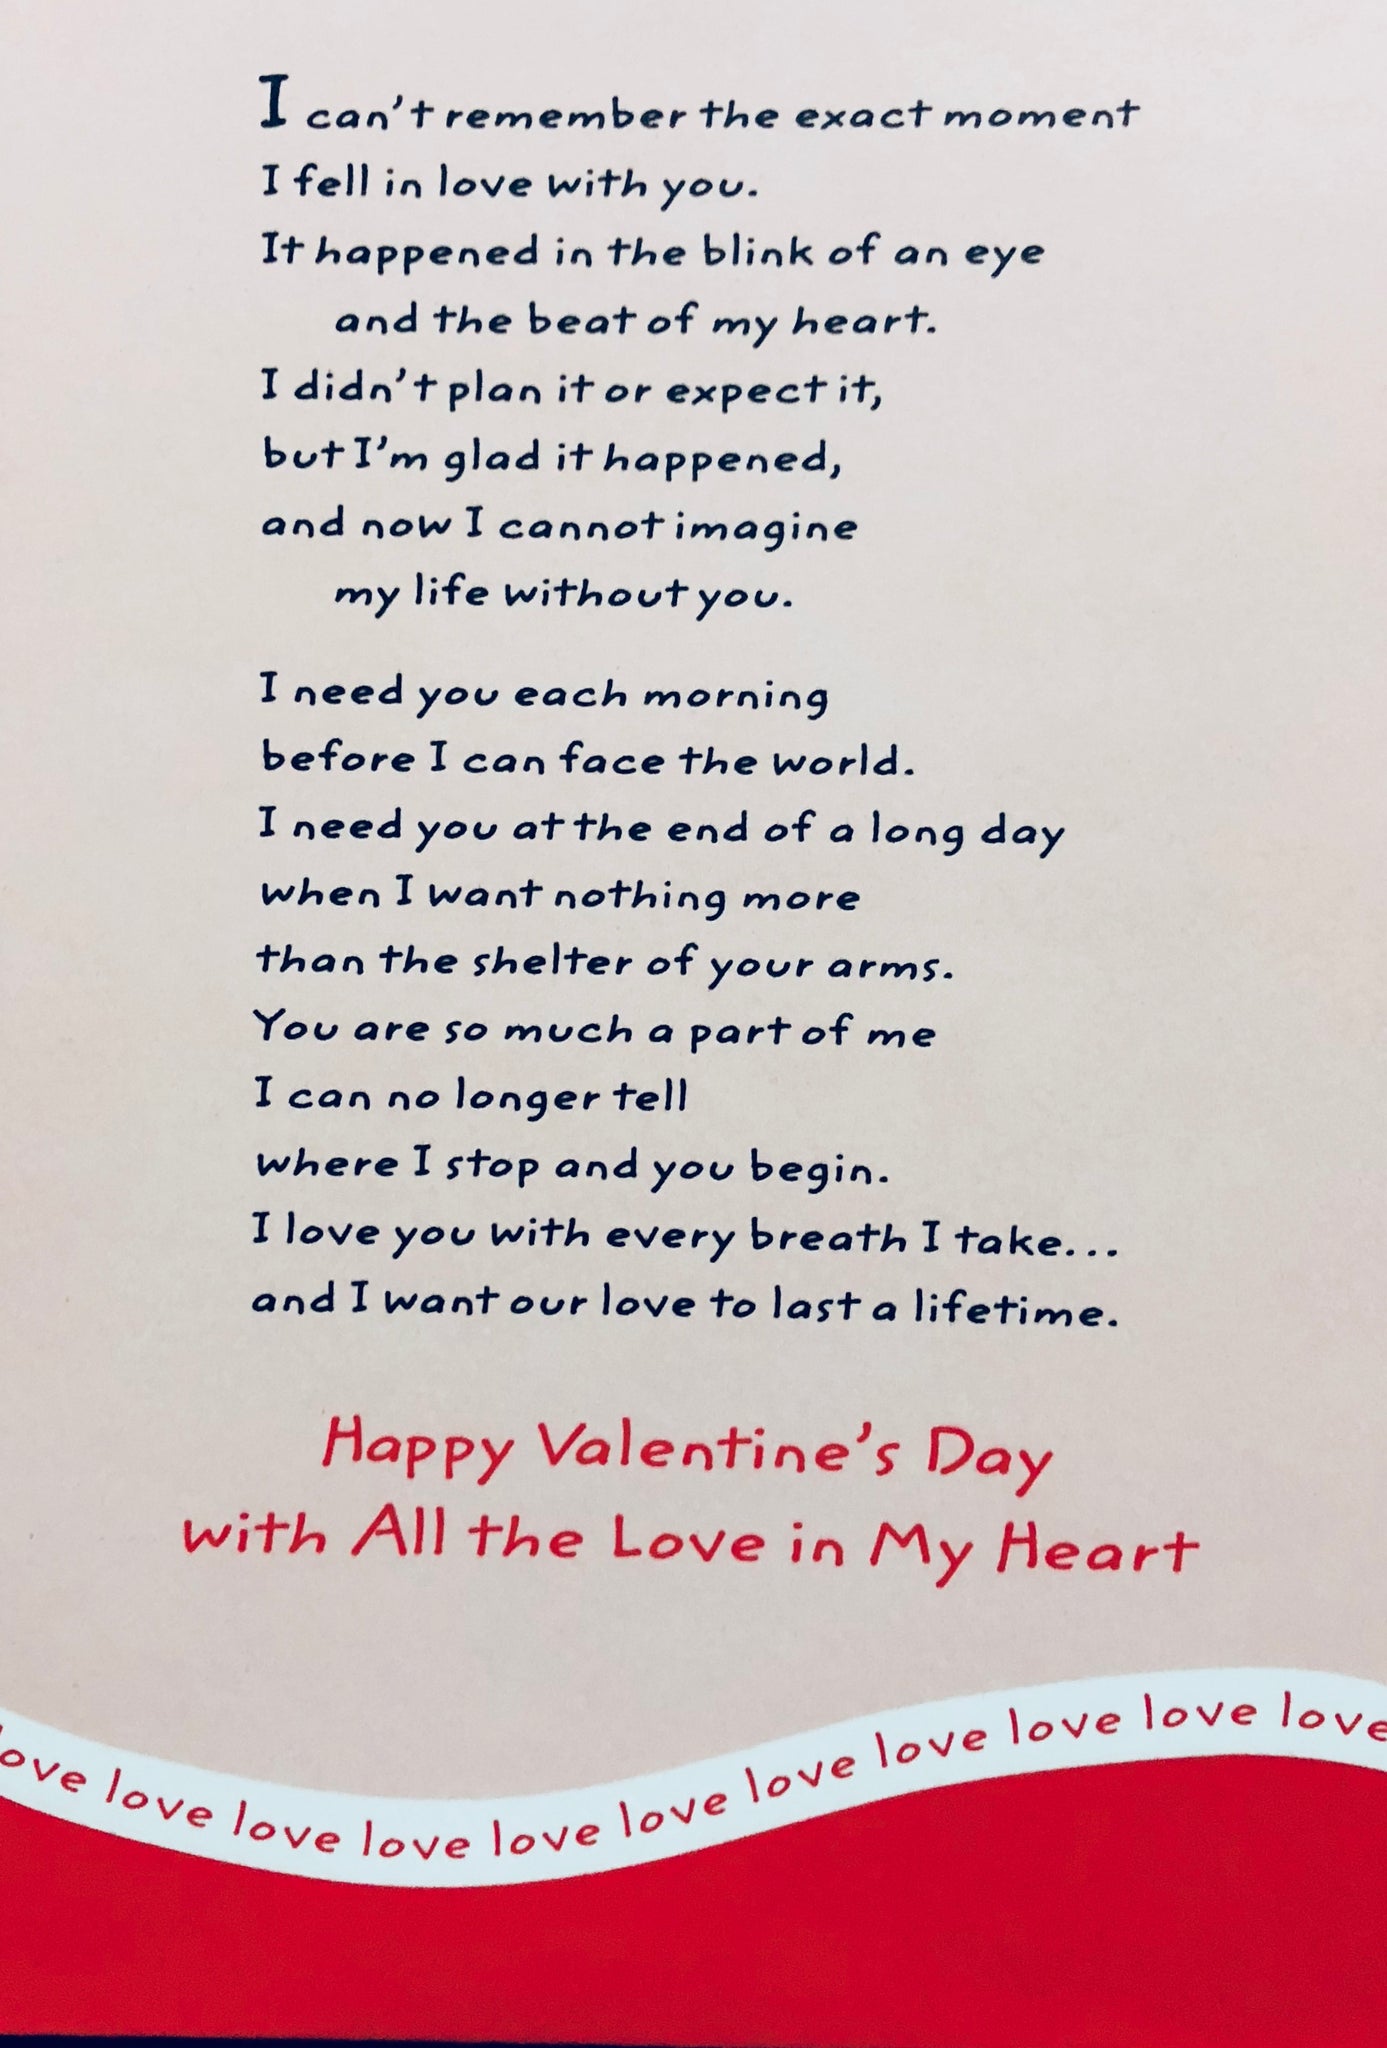 I can't remember the exact moment
I fell in love with you.
It happened in the blink of an eye
and the beat of my heart.
I didn't plan it or expect it,
but I'm glad it happened,
and now I cannot imagine
my life without you.
I need you each morning
before I can face the world.
I need you at the end of a long day
when I want nothing more
than the shelter of your arms.
You are so much a part of me
I can no longer tell
where I stop and you begin.
I love you with every breath I take...
and I want our love to last a lifetime.
Happy Valentine's Day
with All the Love in My Heart
love love love love love love love love love love love